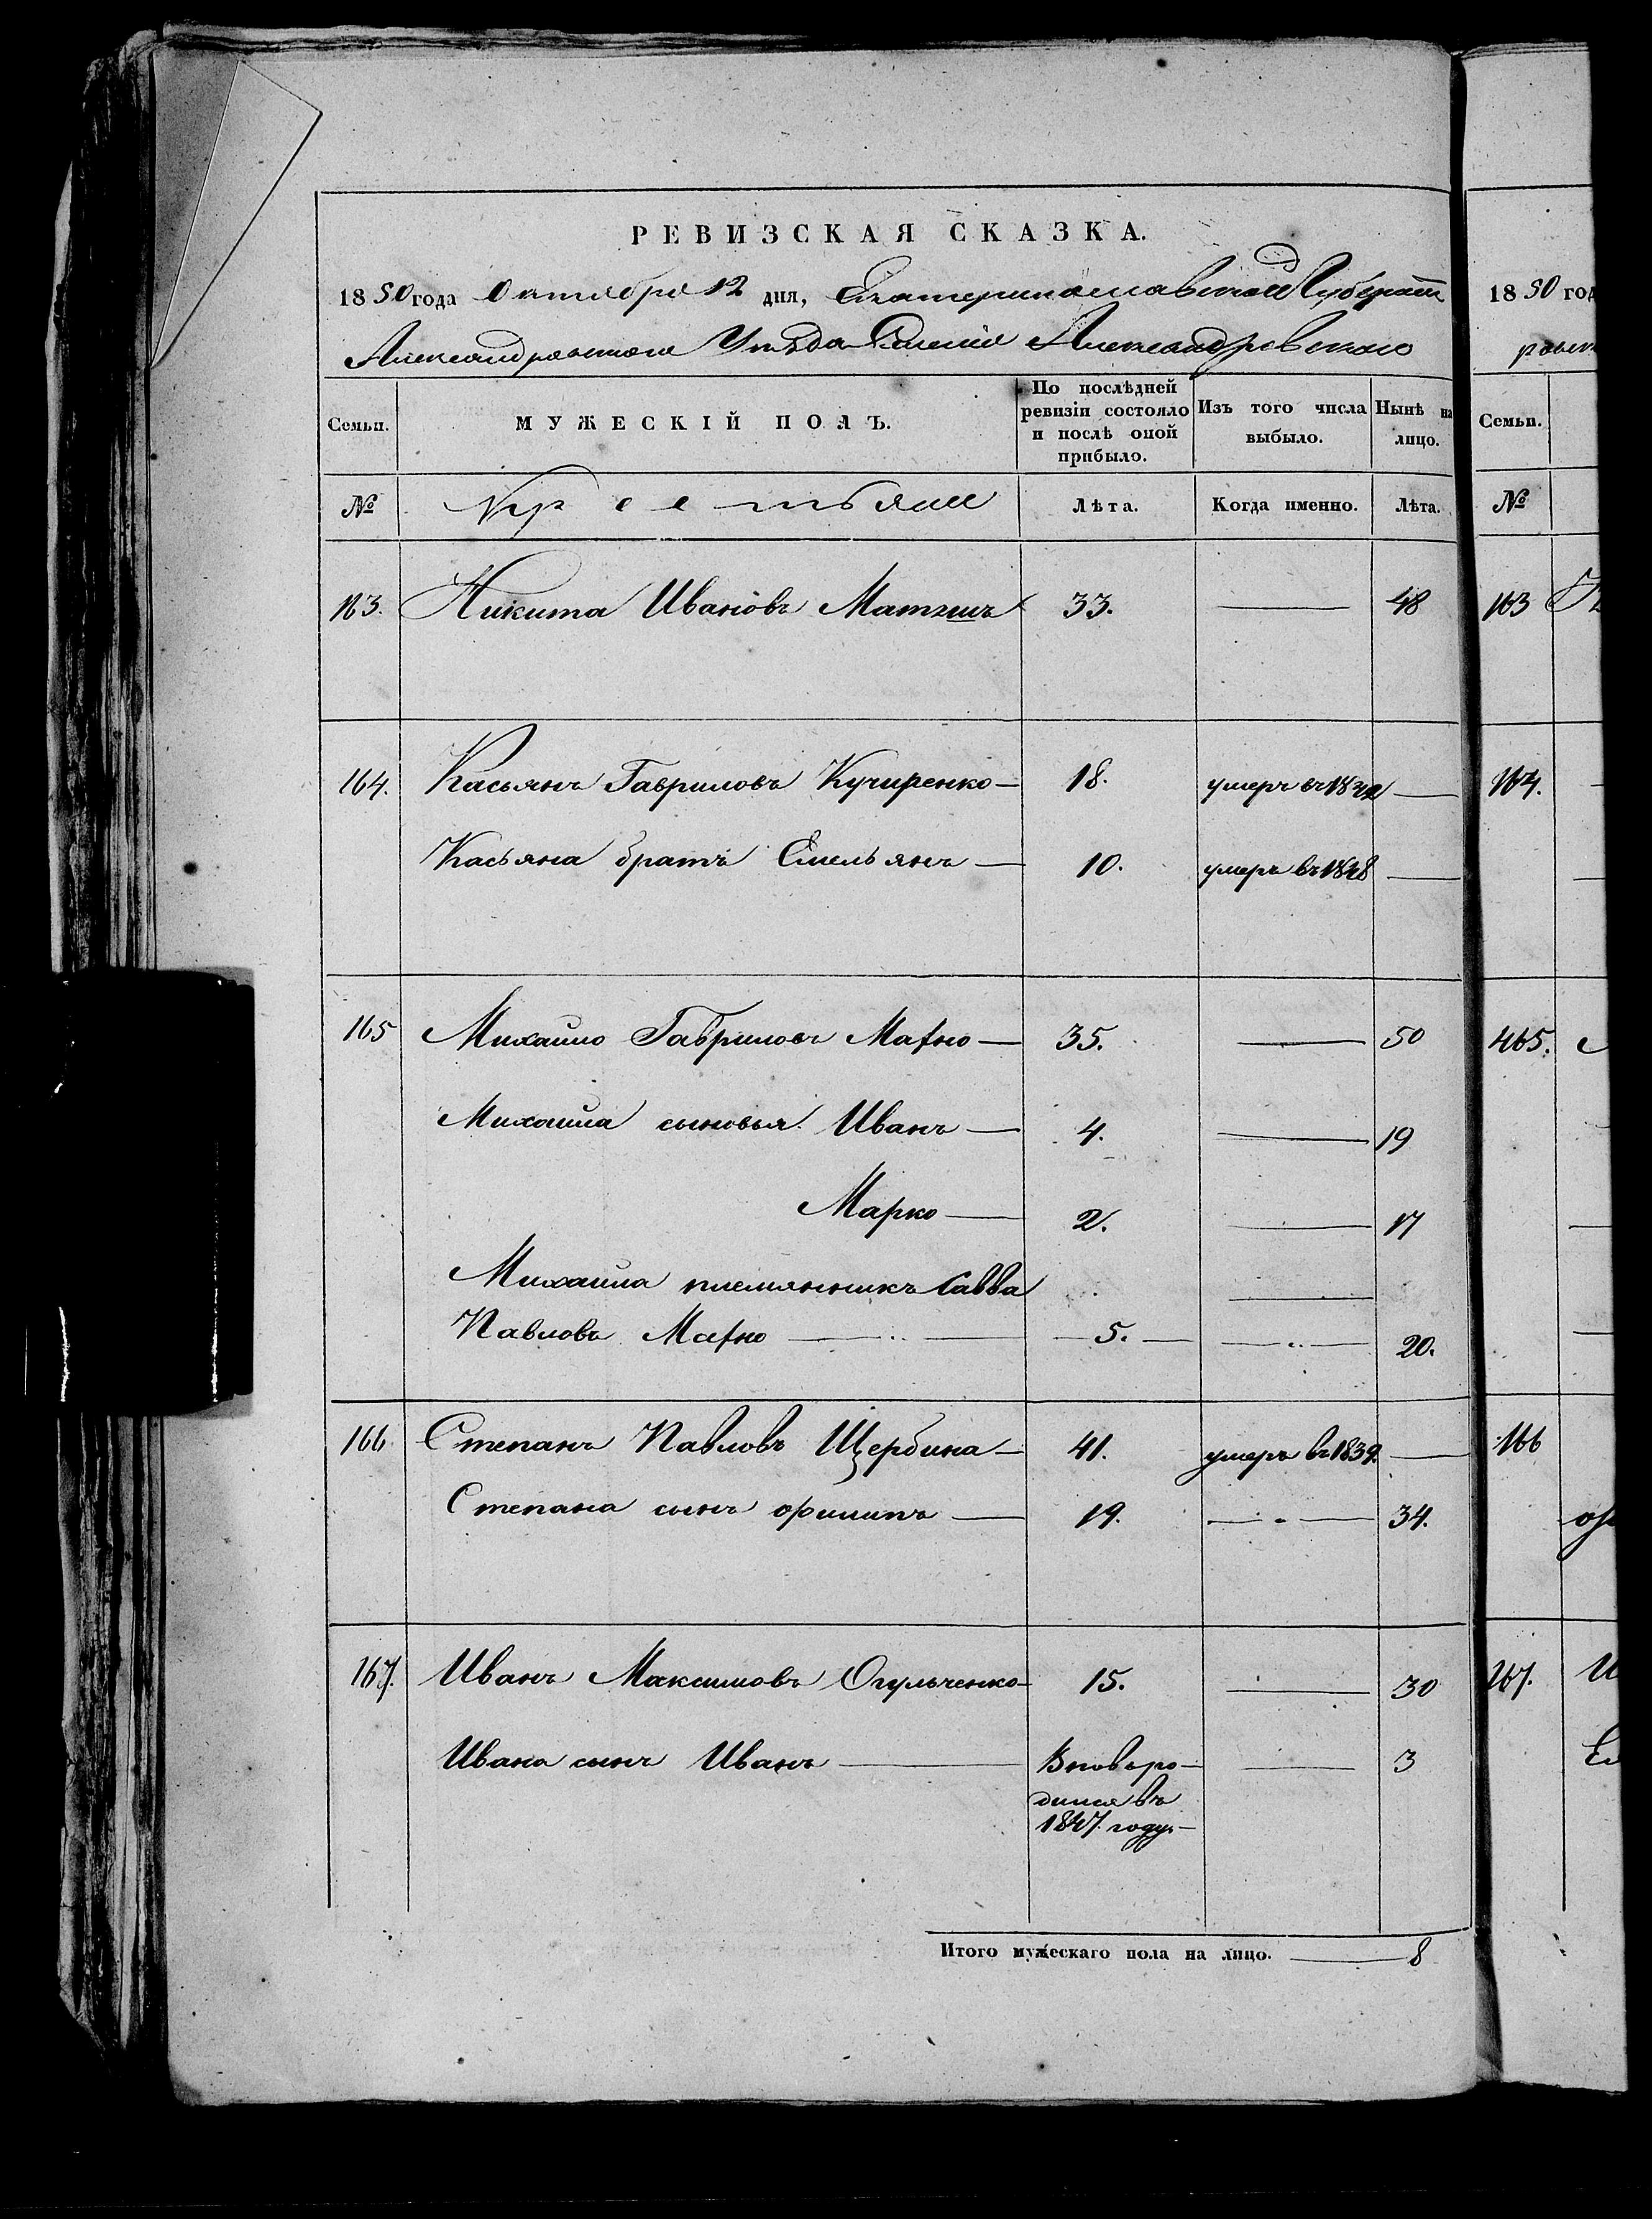 РЕВИЗСКАЯ СКАЗКА.
1850 года Октября 12 дня, Екатеринославской Губерніи
Александровского Уезда Селенія Александровского
Семьи. МУЖЕСКІЙ ПОЛЪ. По послѣдней ревизіи состояло и послѣ оной прибыло. Изъ того числа выбыло. Нынѣ на лицо.
№ Крестьяне Лѣта. Когда именно. Лѣта.
163. Никита Ивановъ 33. — 48
164. Касьянъ Гавриловъ Кучиренко — 18. умеръ въ —
Касьяна братъ Емельянъ — 10. умеръ въ 1848 —
165 Михайло Гавриловъ Махно — 35. — 50
Михайла сыновья Иванъ — 4. — 19
Марко — 2. — 17
Михайла племянникъ Савва —
Павловъ Махно — 5. — — 20.
166. Степанъ Павловъ Щербина — 41. умеръ въ 1839. —
Степана сынъ Филипъ — 19. — 34.
167. Иванъ Максимовъ Огульченко — 15. — 30
Ивана сынъ Иванъ — Вновьро- — 3
дился въ
1847. году —
Итого мужескаго пола на лицо. — 8
1850 год
Семьи.
№
163
164.
165.
166
167.